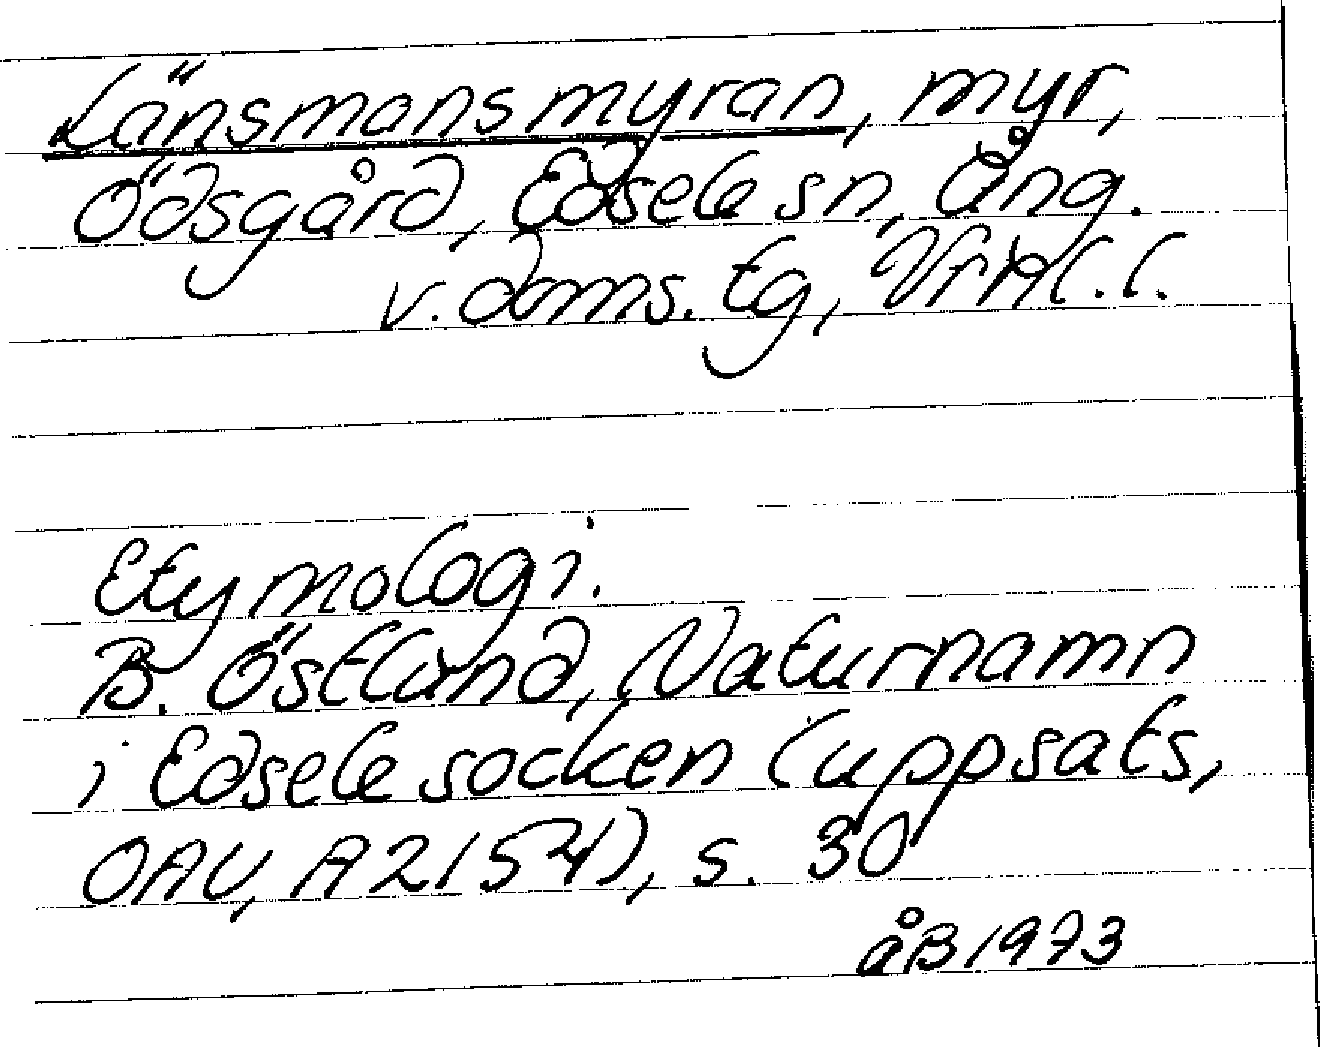 Länsmansmyran, myr,
Ödsgård, Edsele sn, Ång.
v. doms. tg,
Etymologi.
B. Östlund, Naturnamn
i Edsele socken (uppsats,
OAU, A2154), s. 30
åB 1973